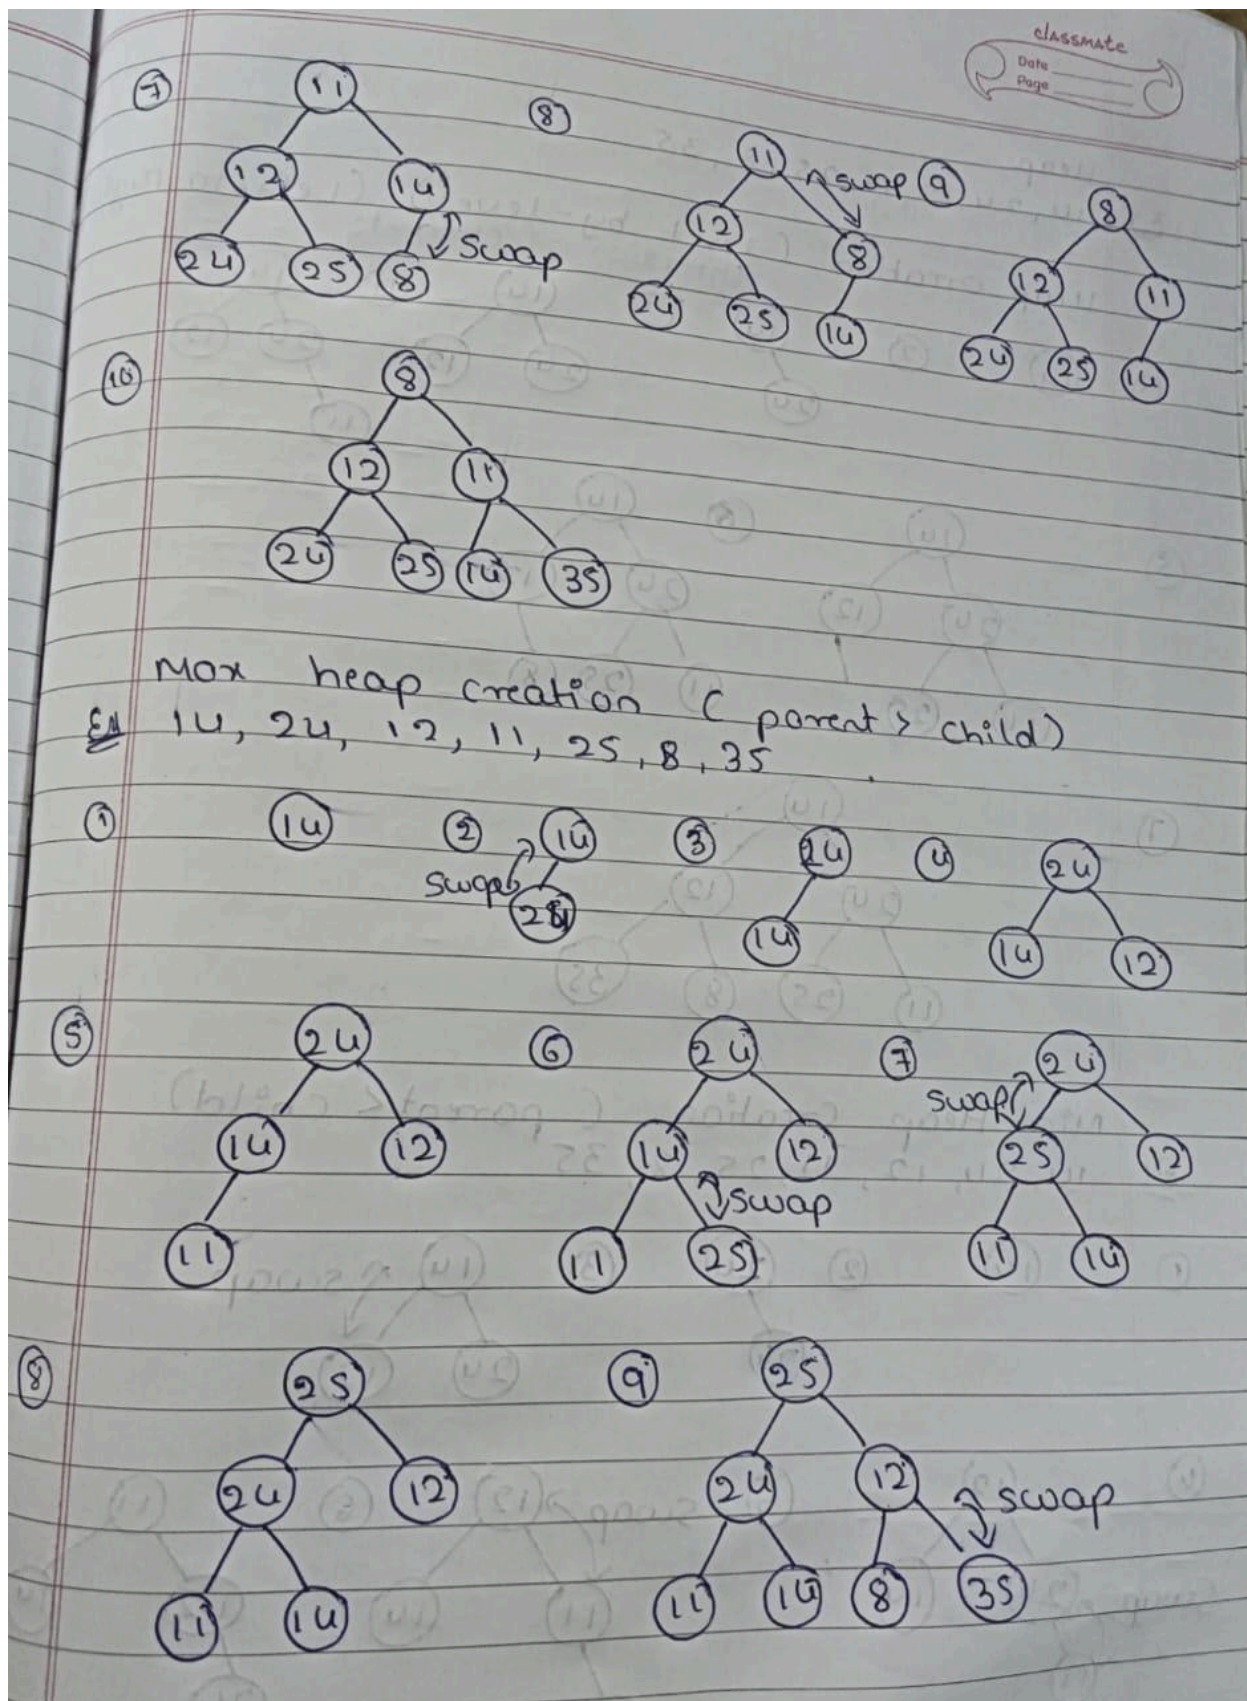 classmate
Date
Page
7
11
12 14
24 25 8 swap
8
11
swap
12 8
24 25 14
9
8
12 11
24 25 14
10
8
12 11
24 25 14 35
Max heap creation ( parent > child)
Ex 14, 24, 12, 11, 25, 8, 35
1 14
2 14
swap
24
3 24
14
4 24
14 12
5 24
14 12
11
6 24
14 12
swap
11 25
7 24
swap
25 12
11 14
8 25
24 12
11 14
9 25
24 12
swap
11 14 8 35